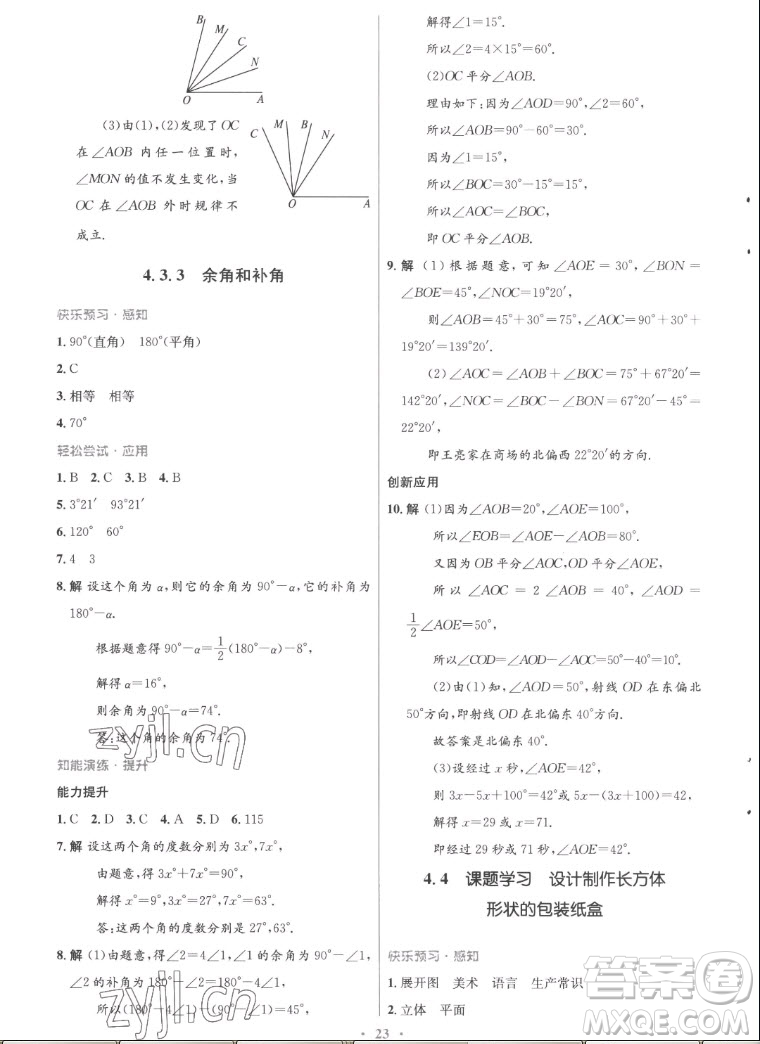 B M C N
O A
(3)由(1),(2)发现了 OC
在∠AOB 内任一位置时,
∠MON 的值不发生变化,当
OC 在∠AOB 外时规律不
成立.
C M B N
O A
4.3.3 余角和补角
快乐预习·感知
1.90°(直角) 180°(平角)
2.C
3.相等 相等
4.70°
轻松尝试·应用
1.B 2.C 3.B 4.C
5.3°21′ 93°21′
6.120° 60°
7.4 3
8.解 设这个角为 α,则它的余角为 90°-α,它的补角为
180°-α.
根据题意得 90°-α=1/2(180°-α)-8°,
解得 α=16°,
则余角为 90°-α=74°.
答:这个角的余角为 74°.
知能演练·提升
能力提升
1.C 2.D 3.C 4.A 5.D 6.115
7.解 设这两个角的度数分别为 3x°,7x°,
由题意,得 3x°+7x°=90°,
解得 x°=9°,3x°=27°,7x°=63°.
答:这两个角的度数分别为 27°,63°.
8.解 (1)由题意,得∠2=4∠1,∠1 的余角为 90°-∠1,
∠2 的补角为 180°-∠2=180°-4∠1,
所以(180°-4∠1)-(90°-∠1)=45°,
解得∠1=15°,
所以∠2=4×15°=60°.
(2)OC 平分∠AOB.
理由如下:因为∠AOD=90°,∠2=60°,
所以∠AOB=90°-60°=30°.
因为∠1=15°,
所以∠BOC=30°-15°=15°,
所以∠AOC=∠BOC,
即 OC 平分∠AOB.
9.解 (1)根据题意,可知∠AOE=30°,∠BON=
∠BOE=45°,∠NOC=19°20′,
则∠AOB=45°+30°=75°,∠AOC=90°+30°+
19°20′=139°20′.
(2)∠AOC=∠AOB+∠BOC=75°+67°20′=
142°20′,∠NOC=∠BOC-∠BON=67°20′-45°=
22°20′.
即王亮家在商场的北偏西 22°20′的方向.
创新应用
10.解 (1)因为∠AOB=20°,∠AOE=100°,
所以∠EOB=∠AOE-∠AOB=80°.
又因为 OB 平分∠AOC,OD 平分∠AOE,
所以∠AOC=2∠AOB=40°,∠AOD=
1/2∠AOE=50°,
所以∠COD=∠AOD-∠AOC=50°-40°=10°.
(2)由(1)知,∠AOD=50°,射线 OD 在东偏北
50°方向,即射线 OD 在北偏东 40°方向.
故答案是北偏东 40°.
(3)设经过 x 秒,∠AOE=42°,
则 3x-5x+100°=42°或 5x-(3x+100°)=42°.
解得 x=29 或 x=71.
即经过 29 秒或 71 秒,∠AOE=42°.
4.4 课题学习 设计制作长方体
形状的包装纸盒
快乐预习·感知
1.展开图 美术 语言 生产常识
2.立体 平面
23
zyjl.cn
zyjl.cn
答案圈
MXQE.COM